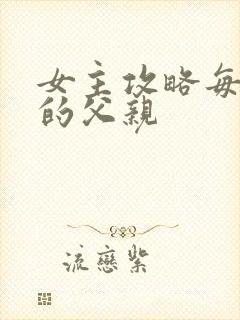 女主攻略每
的父親
流戀紫